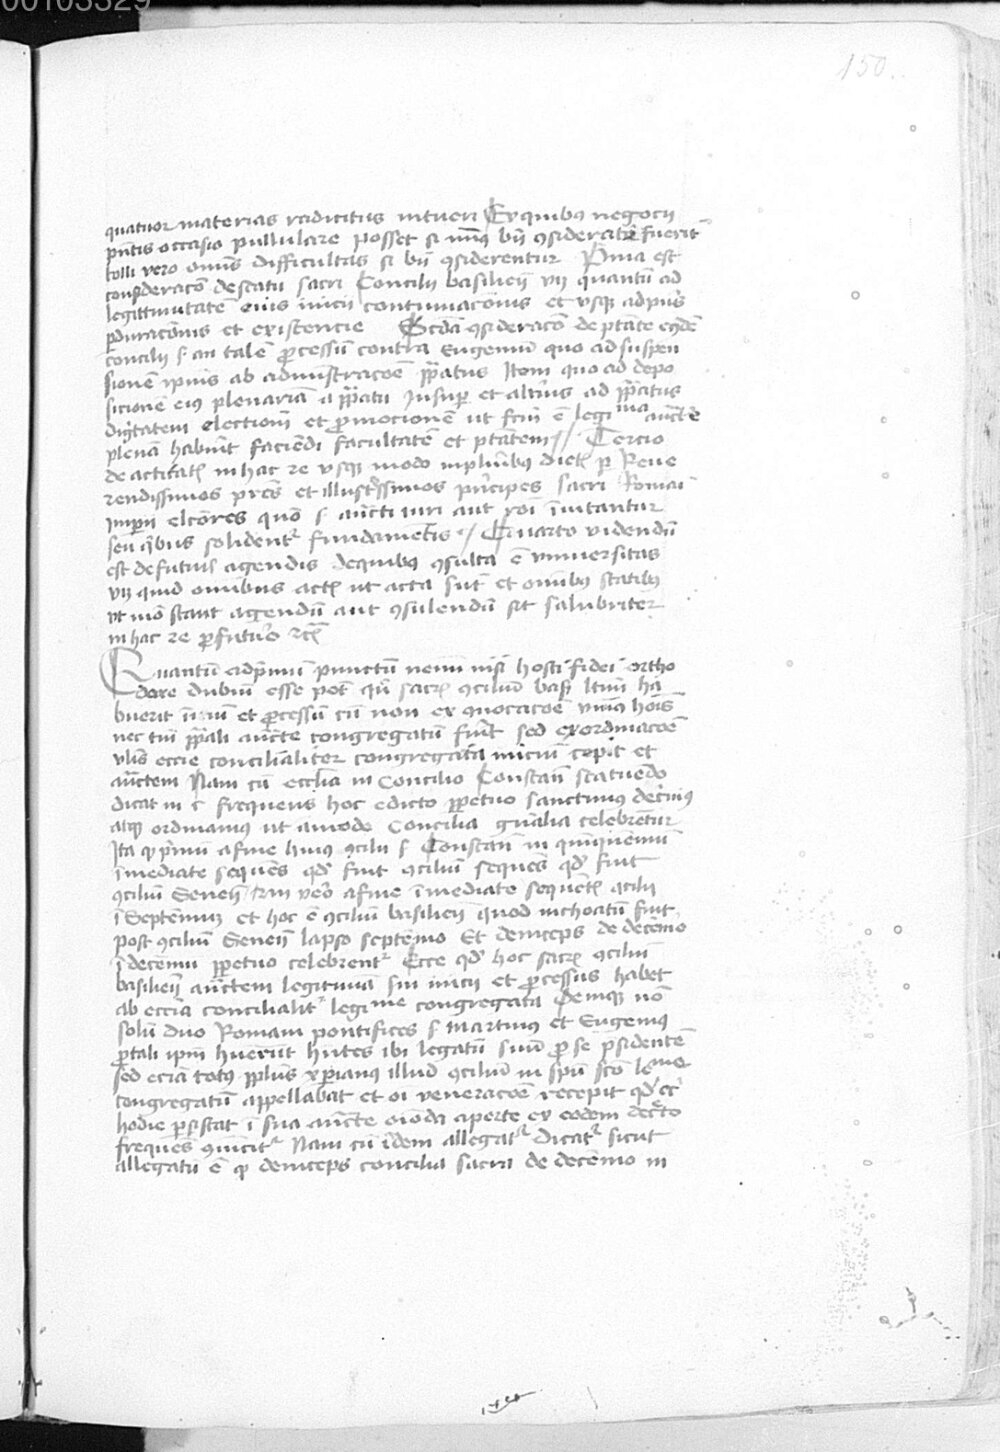 00103329
150.
quatuor materias radicitus intueri Ex quibus negocii
pñtis occasio pullulare posset si minꝰ bñ ꝯsiderate fuerit
tolli vero omnis difficultas si bñ ꝯsiderentur Prima est
consideracō de statu sacri Concilii basilieñ vꝫ quantū ad
legittimitatē eius inicii continuacōnis et vsqꝫ ad pñs
ꝑduracōnis et existencie Scd̄a ꝯsideracō de ptāte eiusdē
concilii s an talē ꝓcessum contra Eugeniū quo ad suspen
sionē ipius ab administracōe ꝑpatus Item quo ad depo
sicionē eiꝰ plenariā a papatu Insuꝑ et alterius ad papatus
dignitatem electionem et ꝓmocionē ut fcm̄ ē legittima auctē
plenā habuit faciendi facultatē et ptātem // Tercio
de actitatis in hac re vsqꝫ modo in pluribꝰ dietis ꝑ Reue
rendissimos pres et illustrissimos principes sacri Romani
Imperii elcōres quō s iuri aut rōi imitantur
seu qibus solidentur fundamētis // Quarto videndū
est de futuris agendis de quibus ꝯsulta ē vniuersitas
vꝫ quid omnibus actis ut acta sūt et omibꝰ statibꝰ
vt mō stant agendū aut ꝯsulendū sit salubriter
in hac re ꝑ futuro etc̄
Quantū ad primū punctū nemini nisi hosti fidei ortho
doxe dubiū esse pōt qn̄ sacrum ꝯciliū basil ltimū ha
buerit iniciū et ꝓcessum cū non ex ꝯuocacōe vnius hoīs
nec tm̄ papali auctē congregatū fuit sed ex ordinacōe
vlis eccīe concilialiter congregata iniciū cepit et
auctem Nam cū ecclīa in Concilio Constan̄ statuendo
dicat in c frequens hoc edicto ꝑpetuo sanctimus decernimꝰ
atqꝫ ordinamus ut amodo Concilia gnālia celebrentur
Ita qꝫ primū a fine huius ꝯcilii s Constan̄ in quinquēniū
īmediate sequens qd̄ fuit ꝯciliū sequens qd̄ fuit
ꝯciliū Seneñ vero a fine īmediate sequentis ꝯcilii
ī Septenniū et hoc ē ꝯciliū basilieñ quod inchoatū fuit
post ꝯciliū Seneñ lapso septennio Et deinceps de decēnio
ī decenniū ꝑpetuo celebrentur Ecce qd̄ hoc sacrū ꝯciliū
basilieñ auctem legitimā sui inicii et ꝓcessus habet
ab ecclīa concilialiter legittime congregata Deniqꝫ nō
solū duo Romani pontifices s Martinus et Eugenius
ꝓ tali ipm̄ huerunt hn̄tes ibi legatū suū ꝓ se presidentē
sed eciā totus ppl̄us xpianus illud ꝯciliū in spū scō letime
congregatū appellabat et oī veneracōe recepit qd̄ et
hodie ꝑsistat ī sua auctē aperte ex eodem decreto
frequens ꝯuincitur Nam cū ibidem allegatur dicatur sicut
allegatū ē qꝫ deinceps concilia sacra de decēnio in